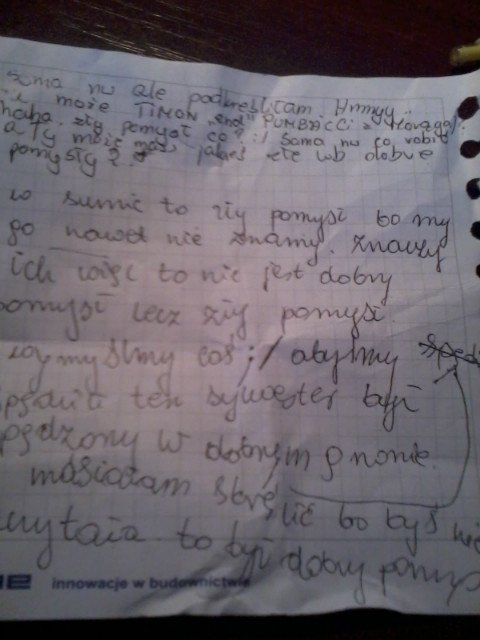 sama nw ale podkreślitam Hmmyy..
i może TIMON "end" PUMBACCI z
haha. zły pomysł co? :/ Sama nw co robić
a Ty może masz jakieś złe lub dobre
pomysły?
w sumie to zły pomysł bo my
go nawet nie znamy. znaczy
ich więc to nie jest dobry
pomysł lecz zły pomysł.
wymyślmy coś ;/ abyśmy
ten sylwester był
spędzony w dobrym gronie.
musiałam skreślić bo byś nie
to był dobry pomysł
innowacje w budownictwie